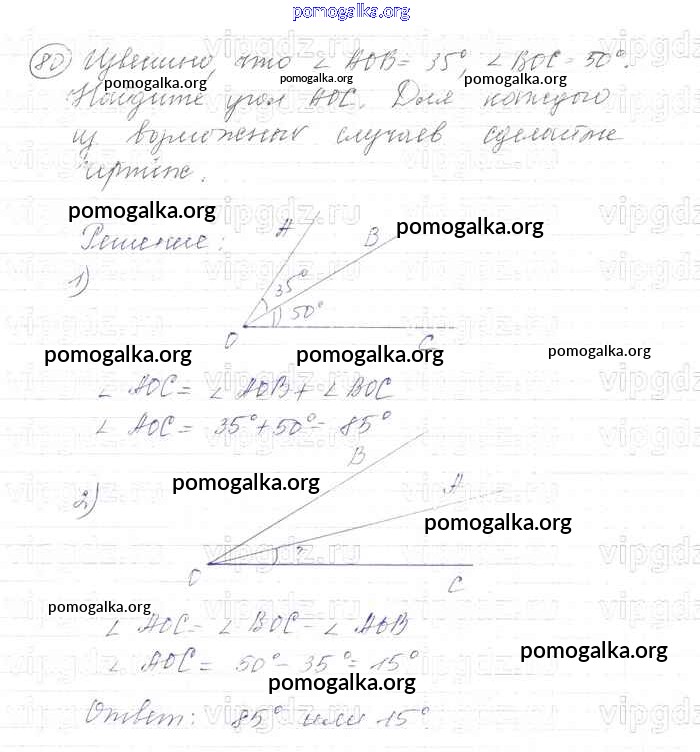 pomogalka.org
80) Известно, что ∠ AOB = 35°, ∠ BOC = 50°.
pomogalka.org pomogalka.org pomogalka.org
Найдите угол AOC. Для каждого
из возможных случаев сделайте
чертёж.
pomogalka.org vipgdz.ru
Решение:
A B pomogalka.org
1)
35°
50°
O C
pomogalka.org pomogalka.org pomogalka.org
∠ AOC = ∠ AOB + ∠ BOC
∠ AOC = 35° + 50° = 85°
B
pomogalka.org A
2)
pomogalka.org
?
O C
pomogalka.org
∠ AOC = ∠ BOC - ∠ AOB
pomogalka.org
∠ AOC = 50° - 35° = 15°
pomogalka.org
Ответ: 85° или 15°